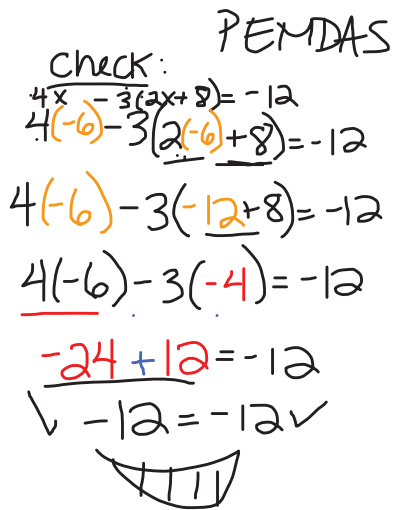 PEMDAS
Check:
4x - 3(2x + 8) = -12
4(-6) - 3(2(-6) + 8) = -12
4(-6) - 3(-12 + 8) = -12
4(-6) - 3(-4) = -12
-24 + 12 = -12
-12 = -12